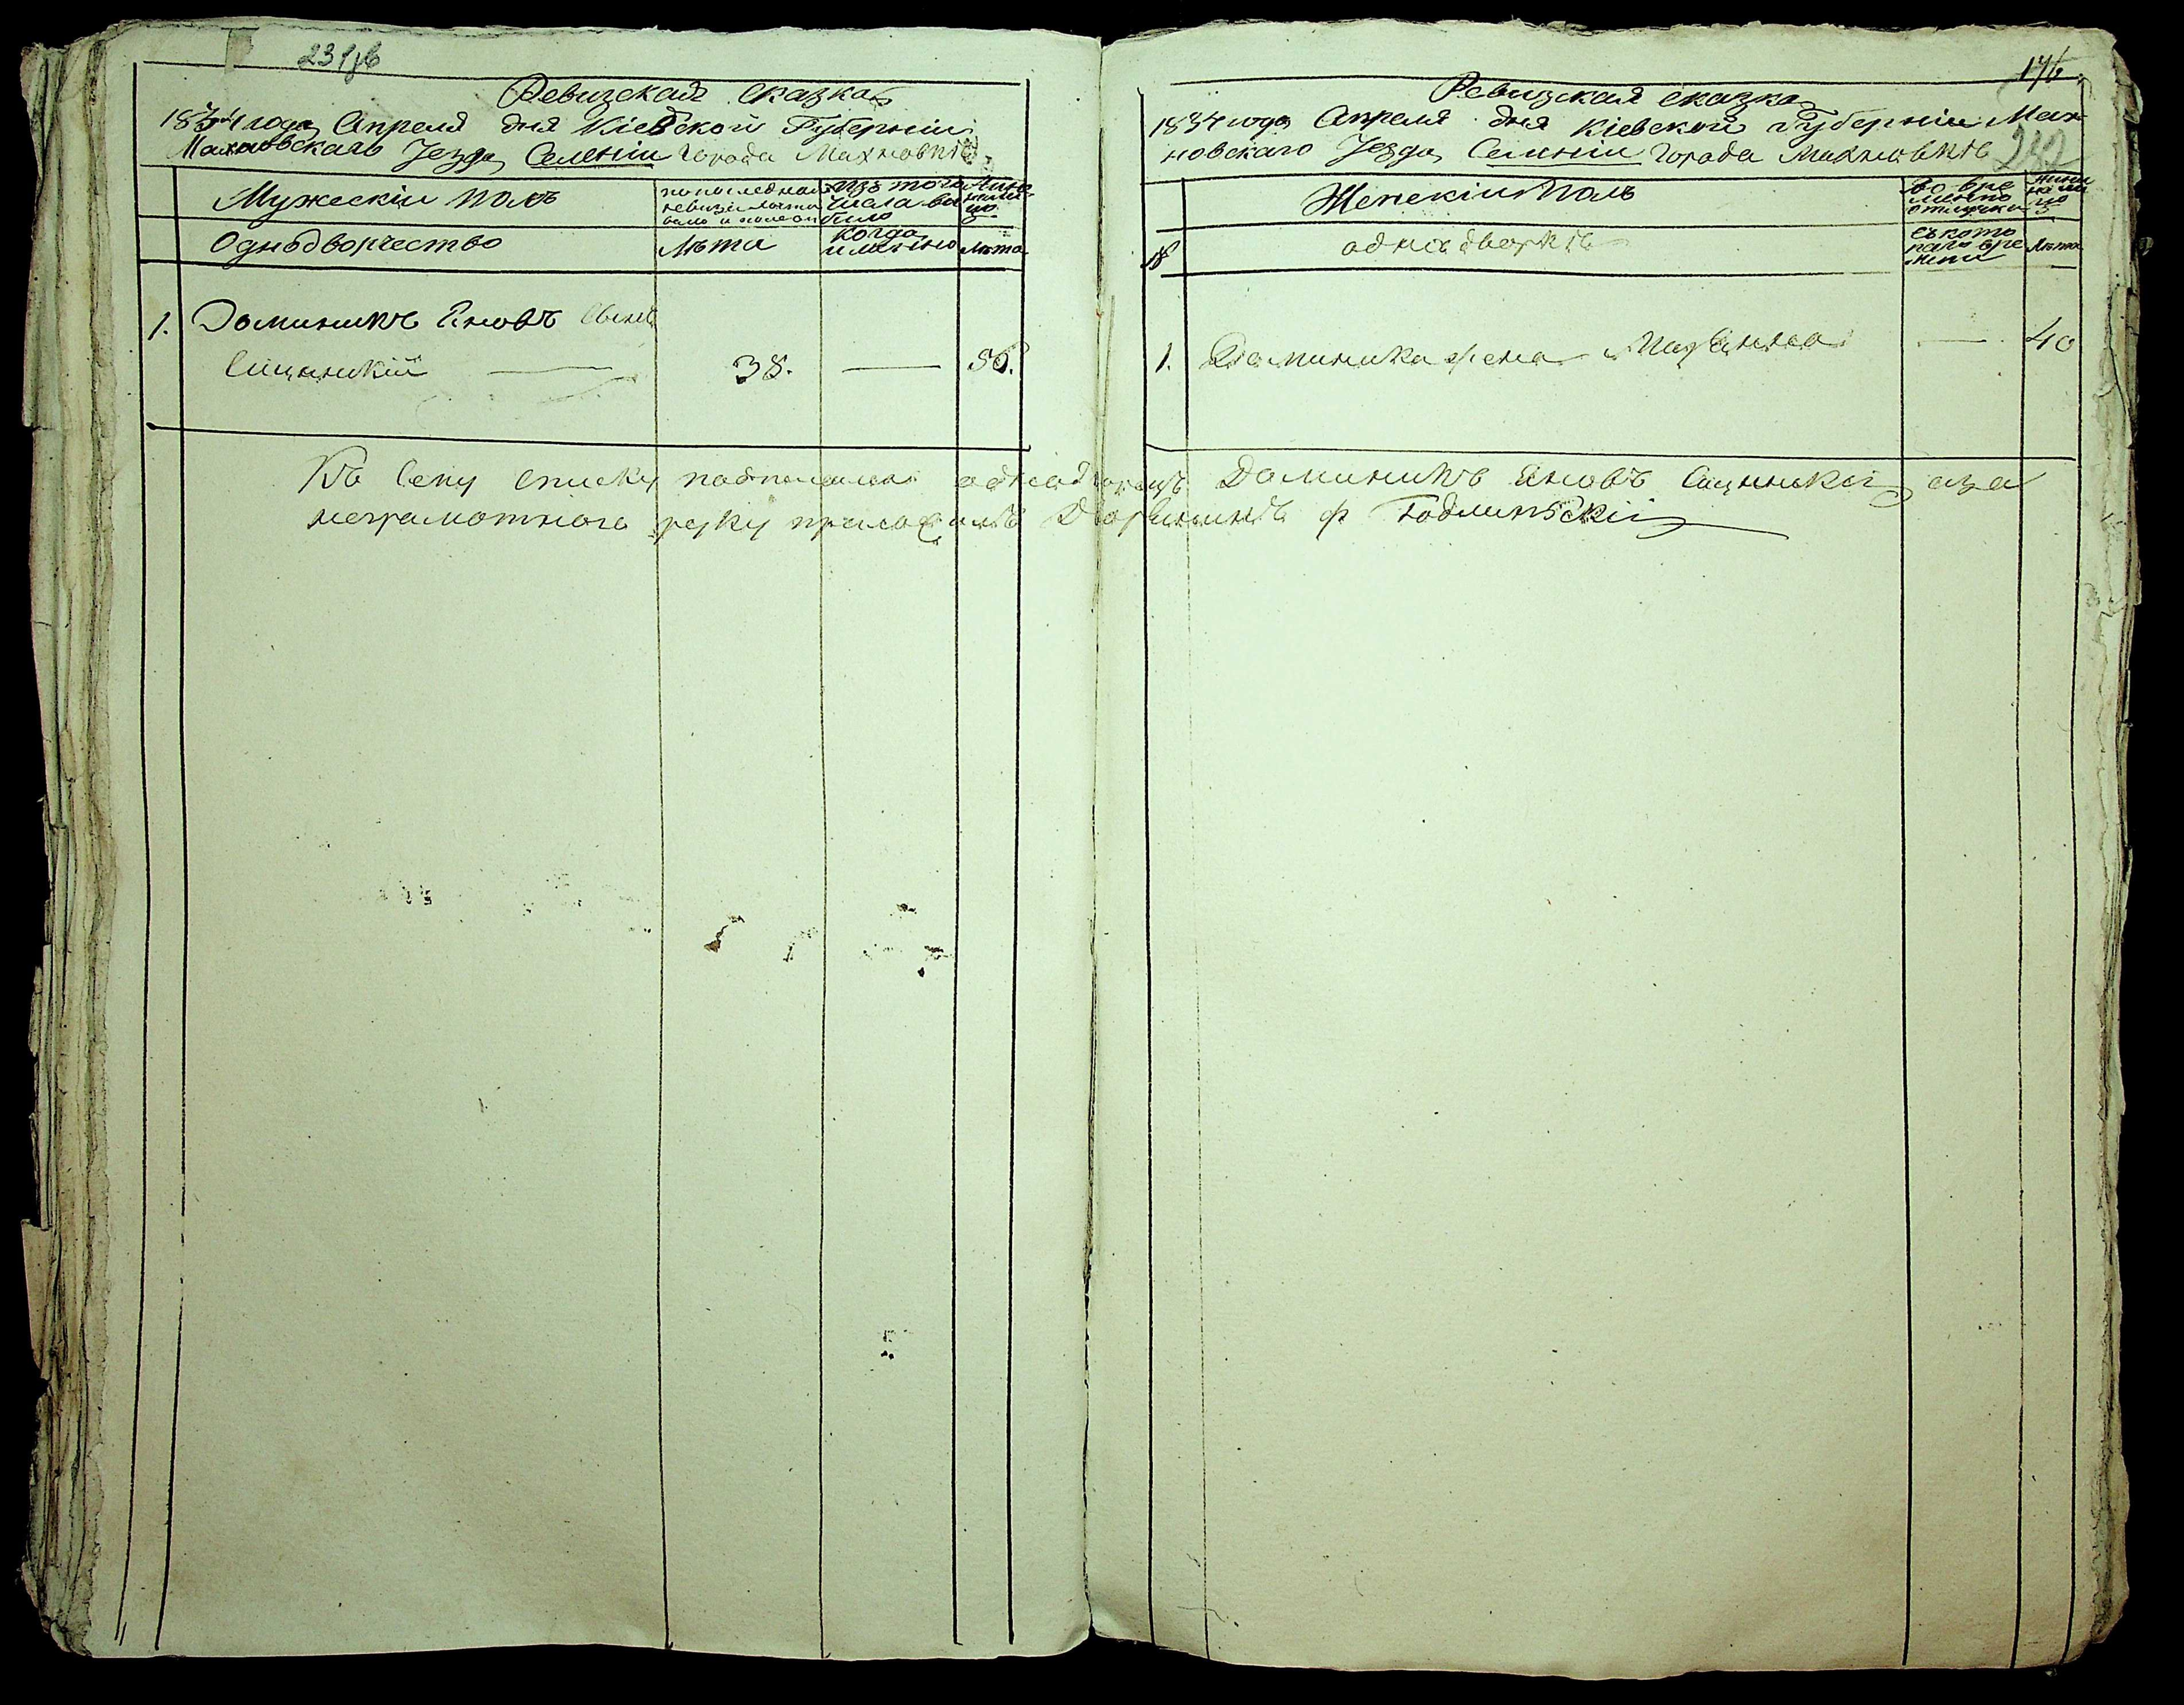 231об
Ревизская сказка
1834 года Апреля дня Кіевской Губерніи
Махновскаго Уезда Селенія города Махновки
Мужескіи полъ
по последней ревизіи состояло и после
изъ того числа выбыло
Ныне на лицо
Однодворчество
Лѣта
когда именно
Лѣта
1. Доминикъ Яновъ Сынъ
Сицинскій — 38. — 56.
176
Ревизская сказка
1834 года Апреля дня Кіевской губерніи Мах
новскаго Уезда Селеніи города Махновкѣ
232
Женскіи Полъ
Во вре
менно
отлучки
Ныне
на ли
цо
№
однодворкѣ
съ кото
раго вре
мени
Лѣта
1. Доминика жена Маріанна — 40
Къ сему списку подписался однодворецъ Доминикъ Яновъ Сицинскій а за
неграмотнаго руку приложилъ Дворянинъ Ф Годлинскій